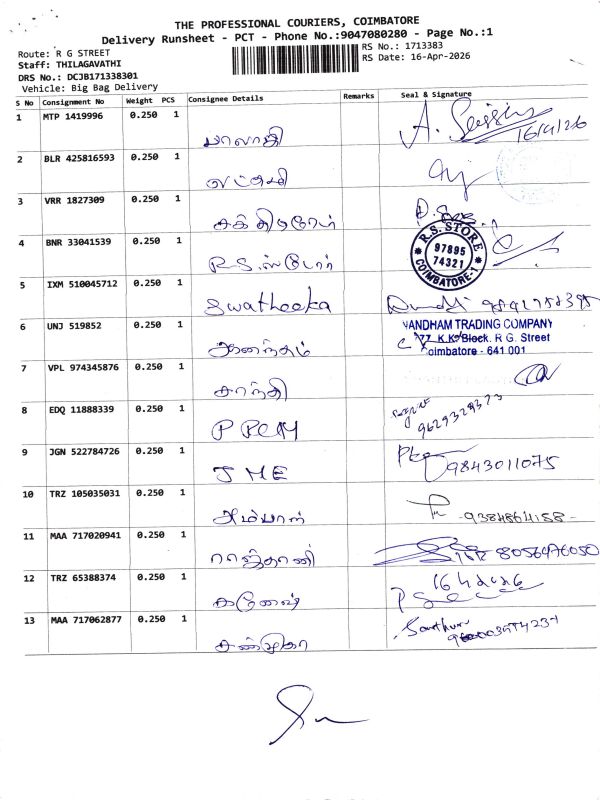 THE PROFESSIONAL COURIERS, COIMBATORE
Delivery Runsheet - PCT - Phone No.:9047080280 - Page No.:1
Route: R G STREET
RS No.: 1713383
Staff: THILAGAVATHI
RS Date: 16-Apr-2026
DRS No.: DCJB171338301
Vehicle: Big Bag Delivery
S No Consignment No Weight PCS Consignee Details Remarks Seal & Signature
1 MTP 1419996 0.250 1
பாலாஜி
16/4/26
2 BLR 425816593 0.250 1
லட்சுமி
3 VRR 1827309 0.250 1
4 BNR 33041539 0.250 1
R.S. ஸ்டோர்
R.S. STORE
97895
74321
COIMBATORE-1
5 IXM 510045712 0.250 1
Swatheeka
6 UNJ 519852 0.250 1
ஆனந்தம்
VANDHAM TRADING COMPANY
K.K. Block. R G. Street
oimbatore - 641 001
7 VPL 974345876 0.250 1
சாந்தி
8 EDQ 11888339 0.250 1
P P C M
9629329373
9 JGN 522784726 0.250 1
J M E
9843011075
10 TRZ 105035031 0.250 1
அம்பாள்
9384864188
11 MAA 717020941 0.250 1
ராஜ்தானி
8056476050
12 TRZ 65388374 0.250 1
கணேஷ்
13 MAA 717062877 0.250 1